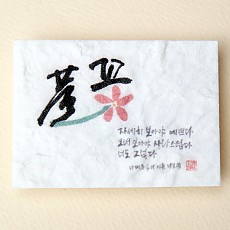 풀꽃
자세히 보아야 예쁘다
오래 보아야 사랑스럽다
너도 그렇다
나태주